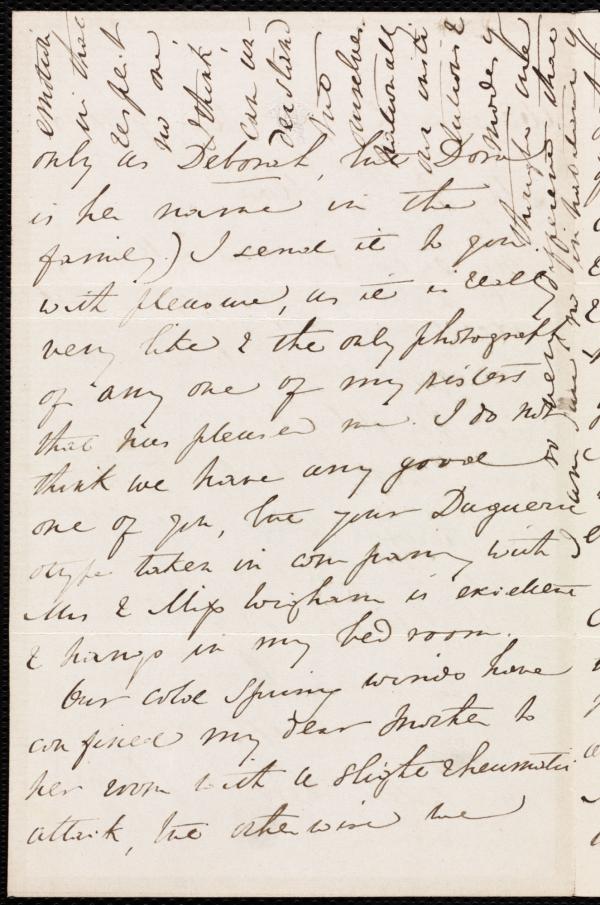 only as Deborah, but Dora
is her name in the
family.) I send it to you
with pleasure, as it is really
very like & the only photograph
of any one of my sisters
that has pleased me. I do not
think we have any good
one of you, but your Daguerre
otype taken in company with
Mrs & Miss Wigham is excellent
& hangs in my bed room.
Our cold Spring winds have
confined my dear Mother to
her room with a slight rheumatic
attack, but otherwise we
emotion
in that
respect
no one
I think,
can un-
derstand
but
ourselves
nationally
our insti-
tutions &
modes of
thought are
so very different that
I am sure no inhabitant of